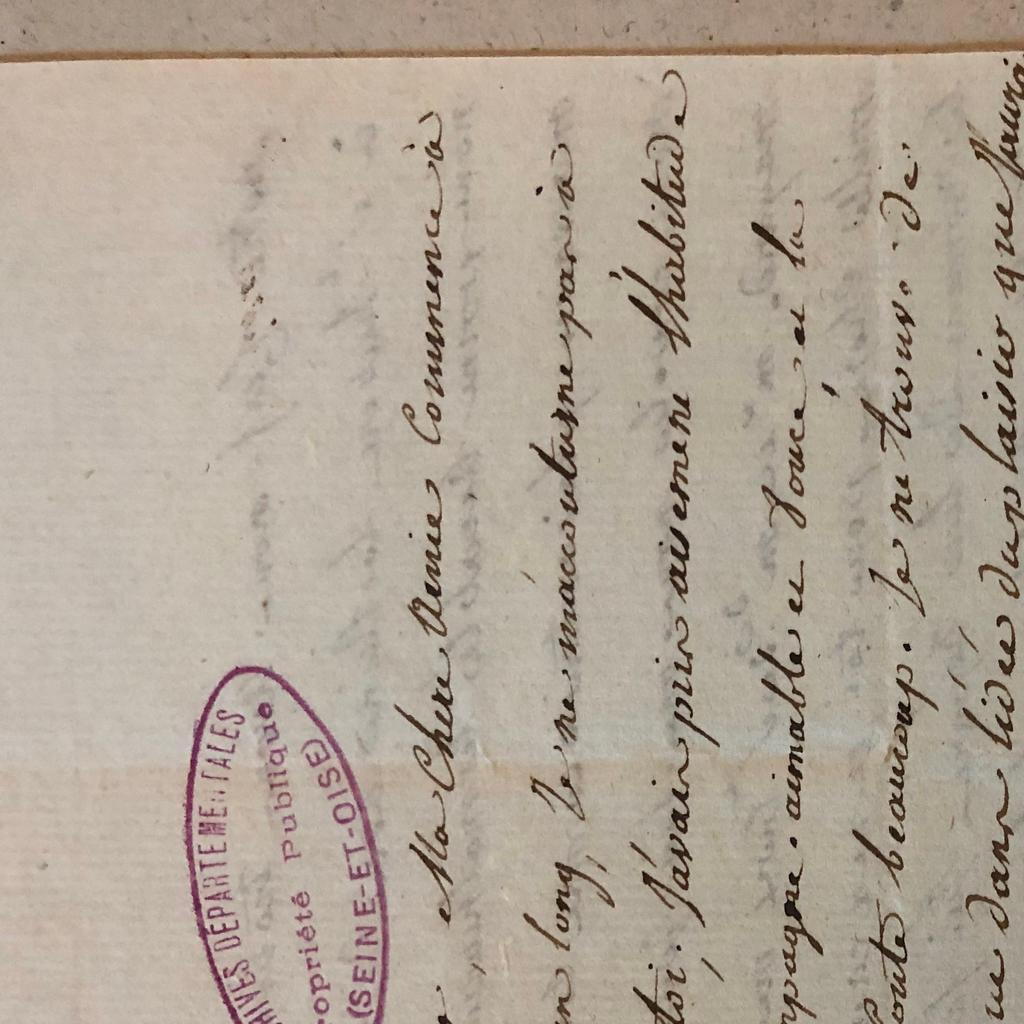 HIVES DÉPARTEMENTALES
opriété Publique
(SEINE-ET-OISE)
Ma Chere Amie Commence à
long, Je ne maccoutume pas à
toi. J'avais pris aisement l'habitude
mpagne aimable et douce et la
coute beaucoup. Je ne trouve de
ue dans l'idée du plaisir que j'aurai